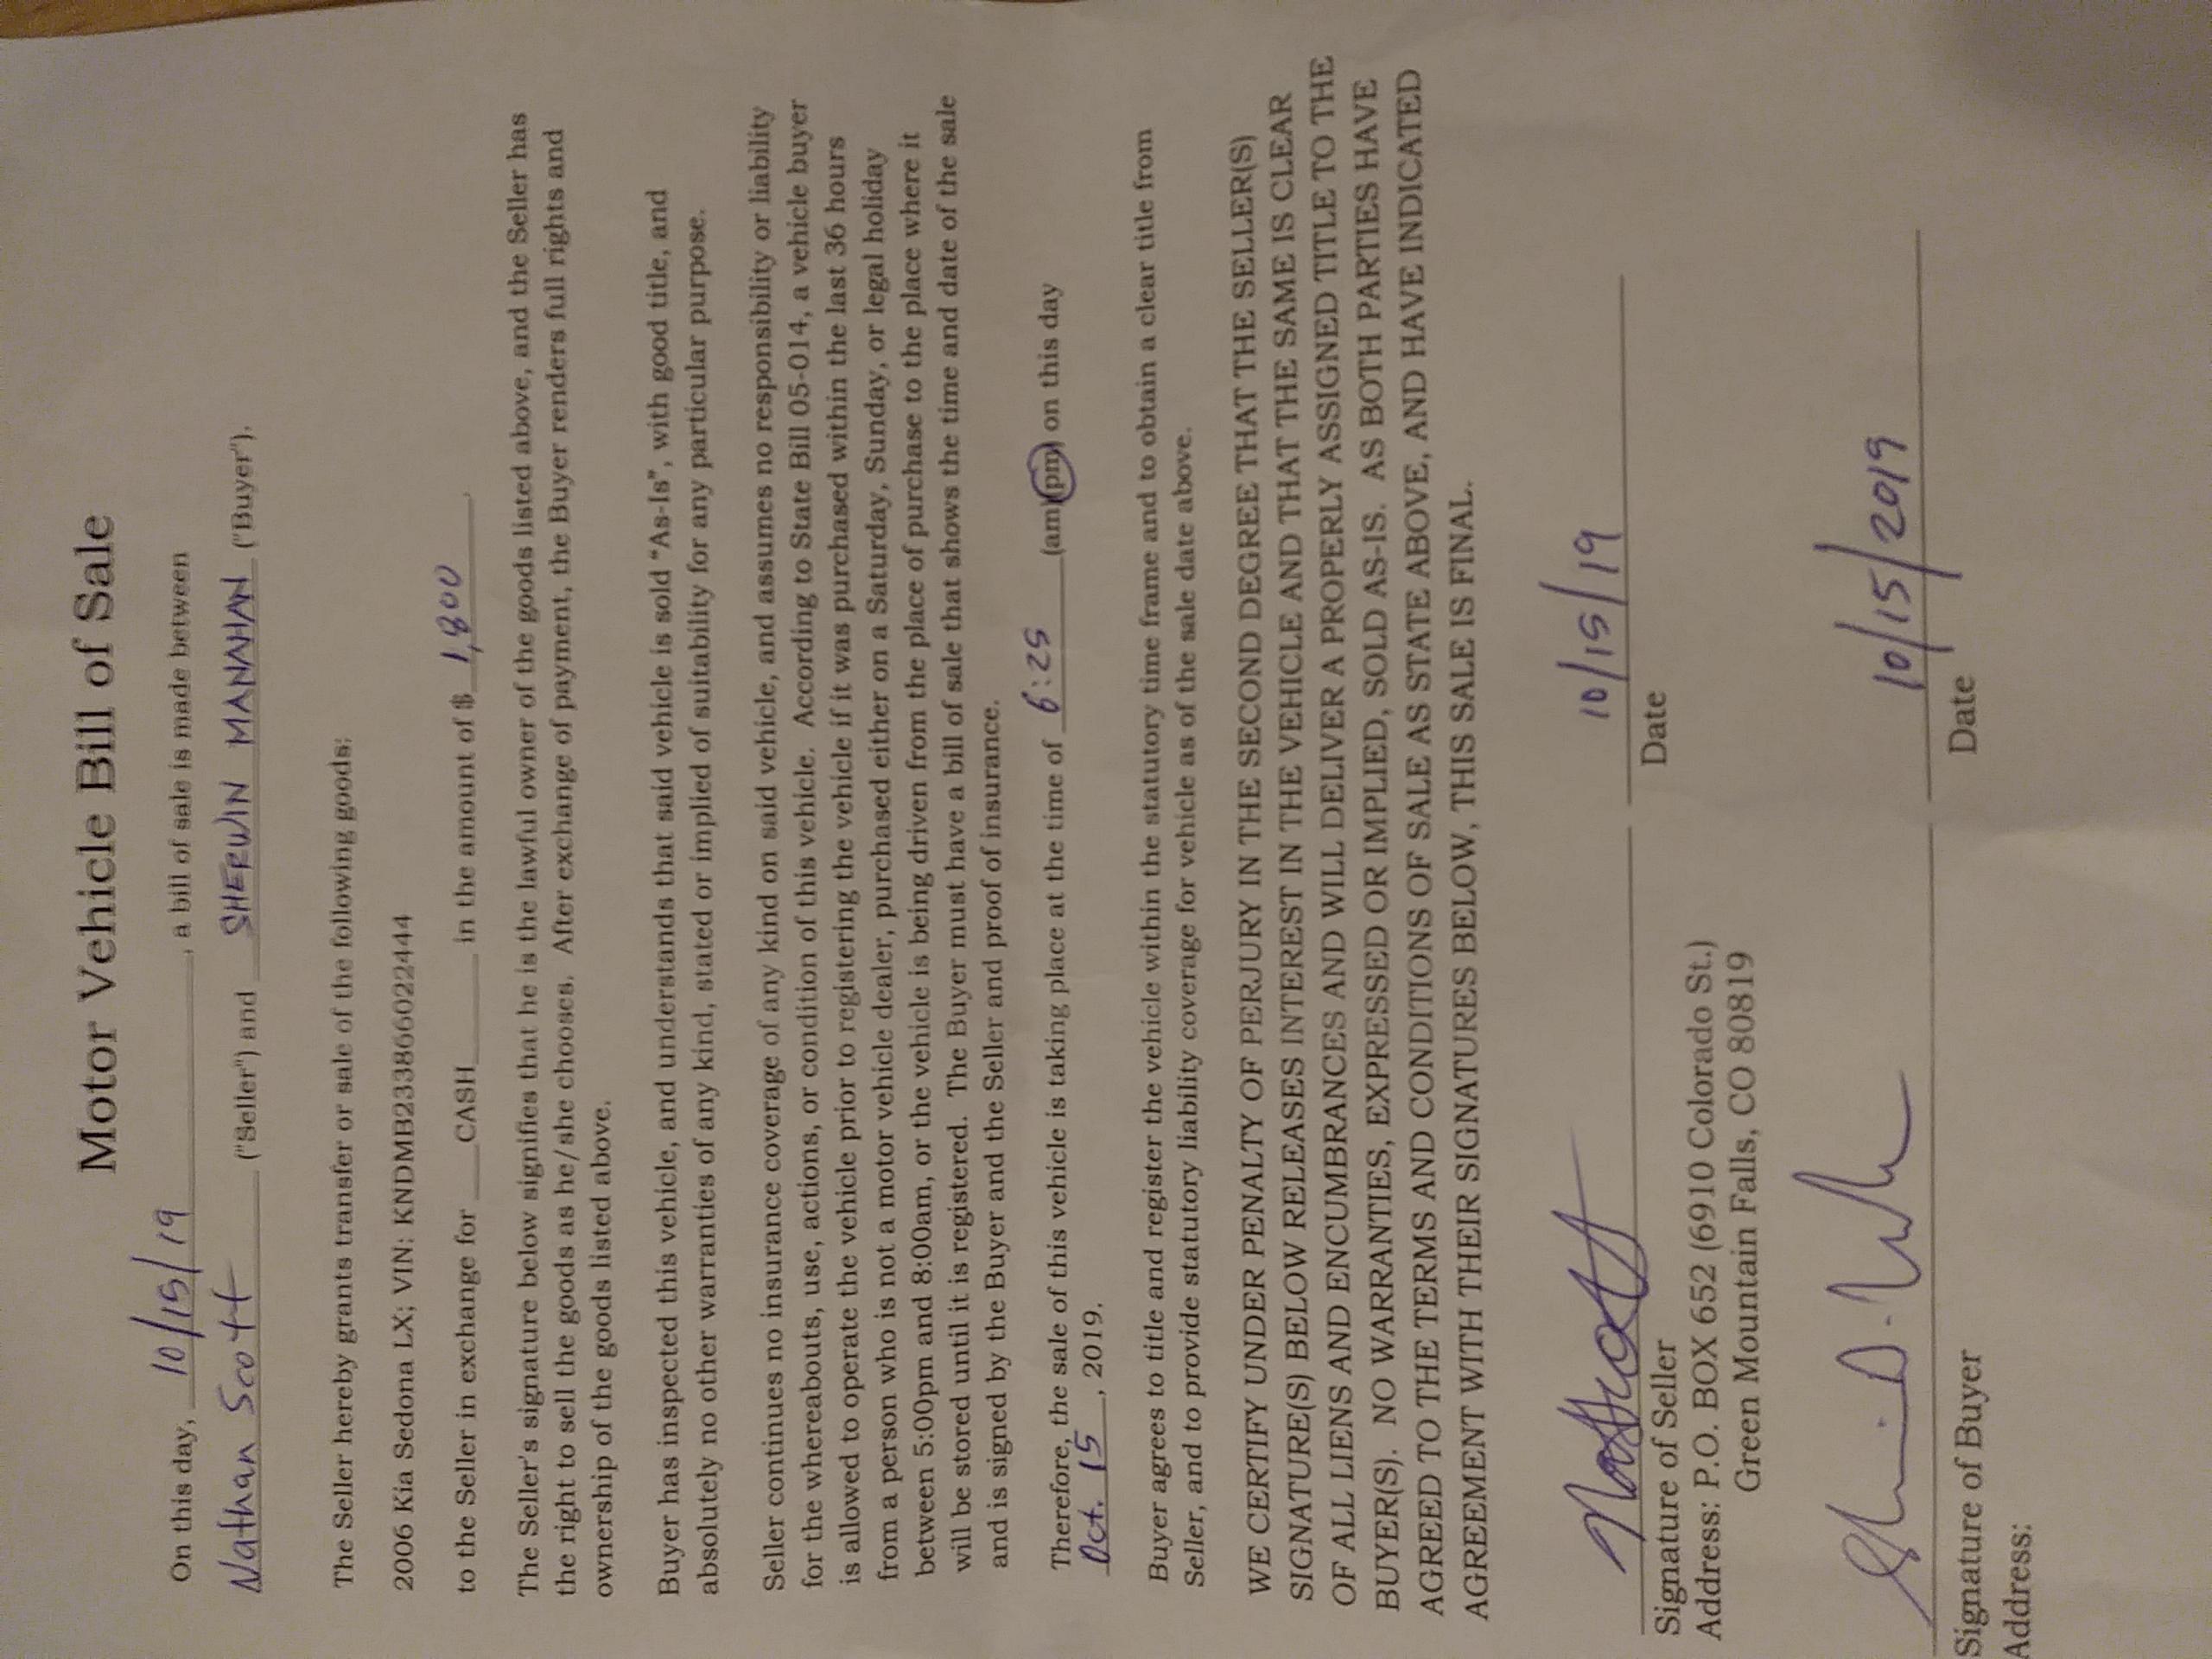 Motor Vehicle Bill of Sale
On this day, 10/15/19, a bill of sale is made between
Nathan Scott ("Seller") and SHERWIN MANAHAN ("Buyer").
The Seller hereby grants transfer or sale of the following goods:
2006 Kia Sedona LX; VIN: KNDMB233866022444
to the Seller in exchange for CASH in the amount of $ 1,800,
The Seller's signature below signifies that he is the lawful owner of the goods listed above, and the Seller has
the right to sell the goods as he/she chooses. After exchange of payment, the Buyer renders full rights and
ownership of the goods listed above.
Buyer has inspected this vehicle, and understands that said vehicle is sold "As-Is", with good title, and
absolutely no other warranties of any kind, stated or implied of suitability for any particular purpose.
Seller continues no insurance coverage of any kind on said vehicle, and assumes no responsibility or liability
for the whereabouts, use, actions, or condition of this vehicle. According to State Bill 05-014, a vehicle buyer
is allowed to operate the vehicle prior to registering the vehicle if it was purchased within the last 36 hours
from a person who is not a motor vehicle dealer, purchased either on a Saturday, Sunday, or legal holiday
between 5:00pm and 8:00am, or the vehicle is being driven from the place of purchase to the place where it
will be stored until it is registered. The Buyer must have a bill of sale that shows the time and date of the sale
and is signed by the Buyer and the Seller and proof of insurance.
Therefore, the sale of this vehicle is taking place at the time of 6:25 (am/pm) on this day
Oct. 15, 2019.
Buyer agrees to title and register the vehicle within the statutory time frame and to obtain a clear title from
Seller, and to provide statutory liability coverage for vehicle as of the sale date above.
WE CERTIFY UNDER PENALTY OF PERJURY IN THE SECOND DEGREE THAT THE SELLER(S)
SIGNATURE(S) BELOW RELEASES INTEREST IN THE VEHICLE AND THAT THE SAME IS CLEAR
OF ALL LIENS AND ENCUMBRANCES AND WILL DELIVER A PROPERLY ASSIGNED TITLE TO THE
BUYER(S). NO WARRANTIES, EXPRESSED OR IMPLIED, SOLD AS-IS. AS BOTH PARTIES HAVE
AGREED TO THE TERMS AND CONDITIONS OF SALE AS STATE ABOVE, AND HAVE INDICATED
AGREEMENT WITH THEIR SIGNATURES BELOW, THIS SALE IS FINAL.
10/15/19
Signature of Seller Date
Address: P.O. BOX 652 (6910 Colorado St.)
Green Mountain Falls, CO 80819
10/15/2019
Signature of Buyer Date
Address: